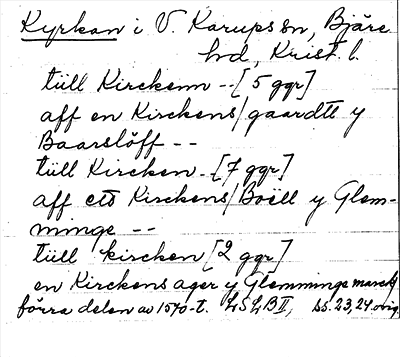 Kyrkan i V. Karups sn, Bjäre
hd, Krist. l.
tiill Kirckenn -- [5 ggr]
aff en Kirckens/gaardtt y
Baarslöff --
tiill Kircken - [7 ggr]
aff ett Kirckens/Boëll y Glem-
minge --
tiill kircken [2 ggr]
en Kirckens ager y Glemminge marck
förra delen av 1570-t. LSLB II, ss. 23, 24 orig.